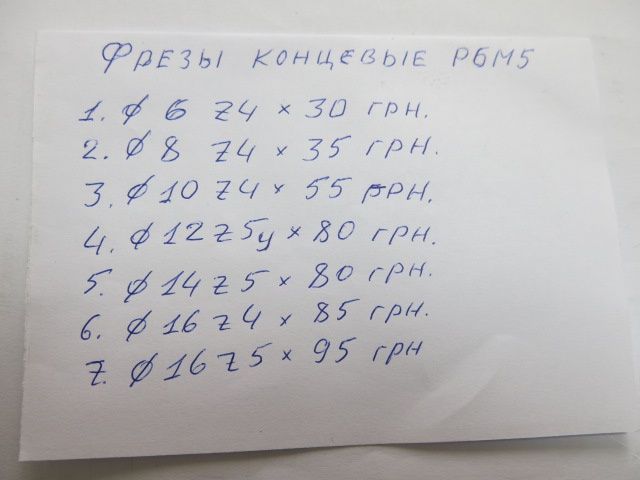 Фрезы концевые Р6М5
1. ϕ 6 Z4 × 30 грн.
2. ϕ 8 Z4 × 35 грн.
3. ϕ 10 Z4 × 55 грн.
4. ϕ 12 Z5у × 80 грн.
5. ϕ 14 Z5 × 80 грн.
6. ϕ 16 Z4 × 85 грн.
7. ϕ 16 Z5 × 95 грн